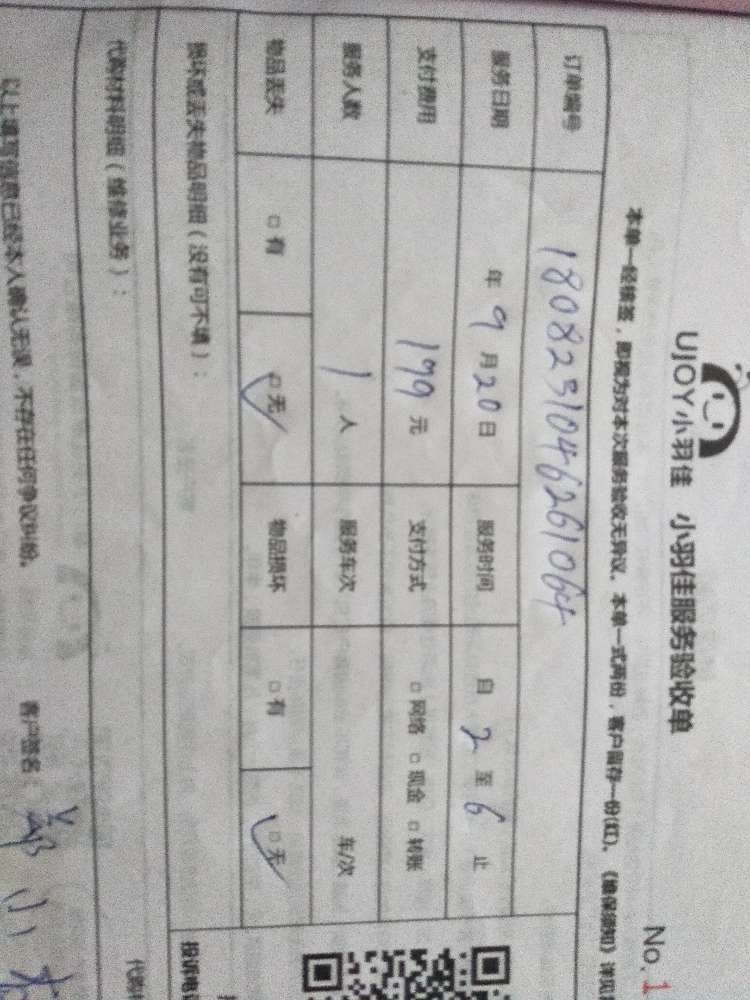 UJOY小羽佳 小羽佳服务验收单
No.1
本单一经接签，即视为对本次服务验收无异议。本单一式两份，客户留存一份(红)。《维保须知》详见
订单编号 1808231046261064
服务日期 年 9 月 20 日 服务时间 自 2 至 6 止
支付费用 199 元 支付方式 □ 网络 □ 现金 □ 转账
服务人数 1 人 服务车次 车/次
物品丢失 □ 有 □ 无 物品损坏 □ 有 □ 无
损坏或丢失物品明细（没有可不填）：
投诉电
代购材料明细（维修业务）：
代购材
以上填写信息已经本人确认无误，不存在任何争议纠纷。 客户签名：